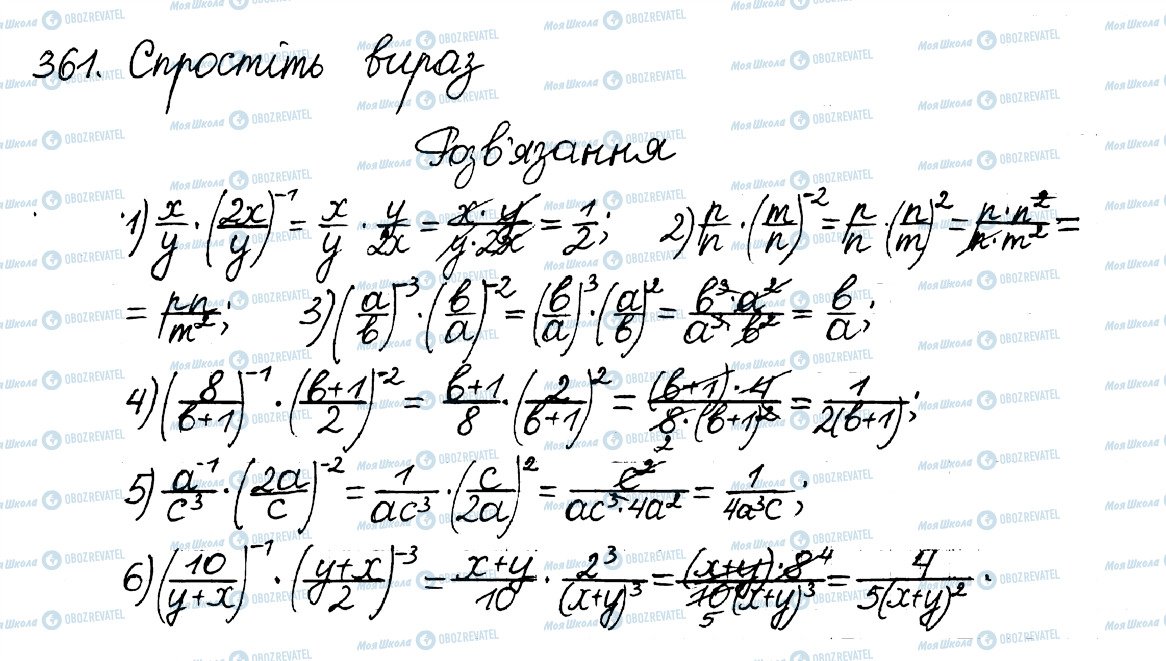 361. Спростіть вираз
Розв'язання
1) x/y · (2x/y)^-1 = x/y · y/2x = x·y/y·2x = 1/2; 2) n/n · (m/n)^-2 = n/n · (n/m)^2 = n·n^2/n·m^2 =
= nn/m^2; 3) (a/b)^-3 · (b/a)^-2 = (b/a)^3 · (a/b)^2 = b^3·a^2/a^3·b^2 = b/a;
4) (8/b+1)^-1 · (b+1/2)^-2 = b+1/8 · (2/b+1)^2 = (b+1)·4/8·(b+1)^2 = 1/2(b+1);
2
5) a^-1/c^3 · (2a/c)^-2 = 1/ac^3 · (c/2a)^2 = c^2/ac^3·4a^2 = 1/4a^3c;
6) (10/y+x)^-1 · (y+x/2)^-3 = x+y/10 · 2^3/(x+y)^3 = (x+y)·8 4/10(x+y)^3 = 4/5(x+y)^2.
5
Моя Школа OBOZREVATEL